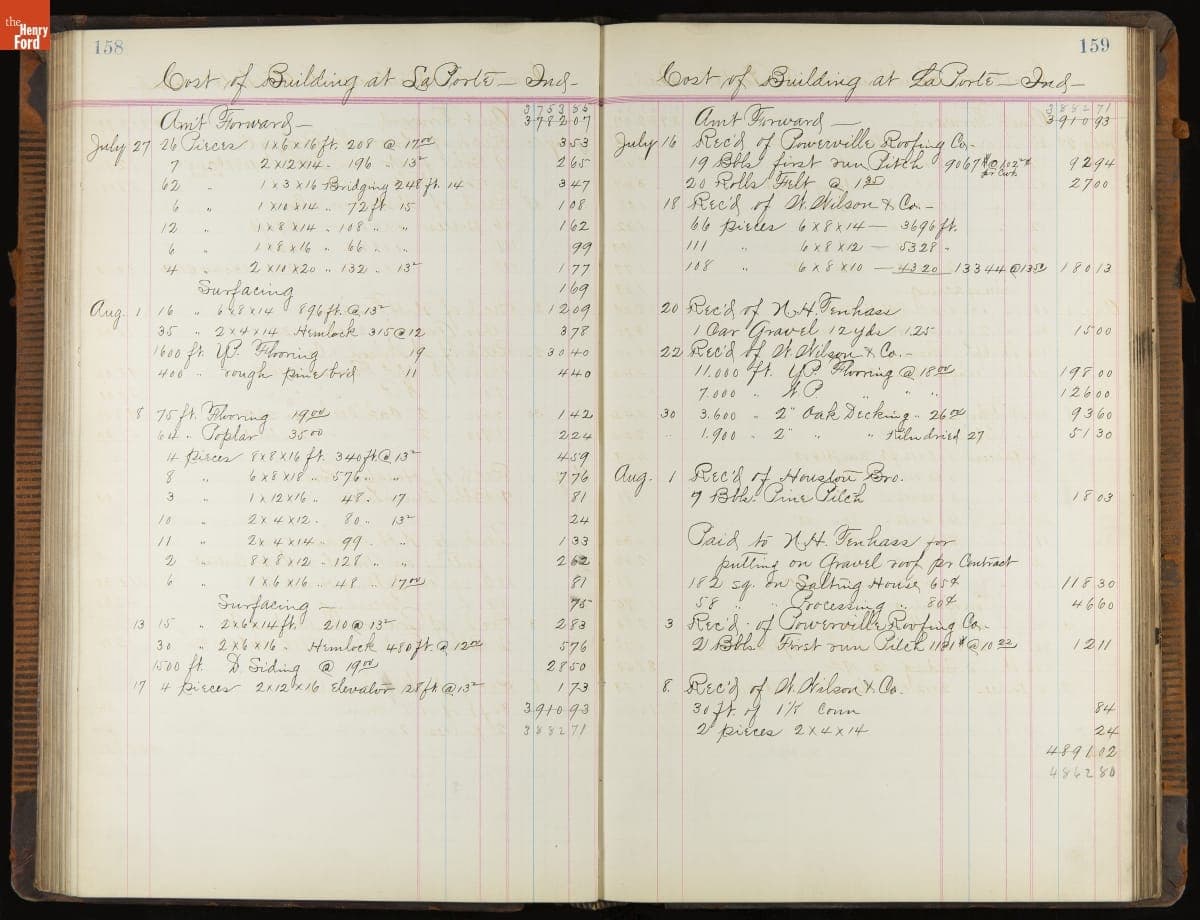 the Henry Ford
158
Cost of Building at La Porte — Ind —
375385
Am't Forward — 378207
July 27 26 Pieces 1x6x16 ft. 208 @ 17.00 353
7 " 2x12x14 . 196 . 13 265
62 " 1x3x16 Bridging 248 ft. 14 347
6 " 1x10x14 .. 72 ft. 15 108
12 " 1x8x14 . 108 .. " 162
6 " 1x8x16 .. 66 .. " 99
4 " 2x10x20 .. 132 .. 13 177
Surfacing 169
Aug. 1 16 " 6x8x14 896 ft. @ 13 1209
35 " 2x4x14 Hemlock 315 @ 12 378
1600 ft. Y.P. Flooring 19 3040
400 " rough pine brd 11 440
8 75 ft. Flooring 19.00 142
64 .. Poplar 35.00 224
4 pieces 8x8x16 ft. 340 ft @ 13 459
8 " 6x8x18 .. 576 .. " 776
3 " 1x12x16 .. 48 . 17 81
10 " 2x4x12 . 80 .. 13 24
11 " 2x4x14 .. 99 .. " 133
2 " 8x8x12 .. 128 .. " 262
6 " 1x6x16 .. 48 . 17.00 81
Surfacing — 75
13 15 " 2x6x14 ft. 210 @ 13 283
30 " 2x6x16 .. Hemlock 480 ft. @ 12.00 576
1500 ft. D. Siding @ 19.00 2850
17 4 pieces 2x12x16 Elevator 128 ft @ 13 173
391093
388271
159
Cost of Building at La Porte — Ind —
388271
Am't Forward — 391093
July 16 Rec'd of Powerville Roofing Co.
19 Bbls. first run Pitch 9067 # @ 1.02 per Cwt. 9294
20 Rolls Felt @ 1.35 2700
18 Rec'd of W. Wilson & Co. —
66 pieces 6x8x14 — 3696 ft.
111 " 6x8x12 — 5328 ..
108 " 6x8x10 — 4320 13344 @ 13.50 18013
20 Rec'd of N. H. Tenhass
1 Car Gravel 12 yds 1.25 1500
22 Rec'd of W. Wilson & Co. —
11.000 ft. Y.P. Flooring @ 18.00 19800
7.000 " W.P. " " " 12600
30 3.600 .. 2" Oak Decking .. 26.00 9360
.. 1.900 .. 2" " " Kiln dried 27 5130
Aug. 1 Rec'd of Houston Bro.
7 Bbls. Pine Pitch 1803
Paid to N. H. Tenhass for
putting on Gravel roof per Contract
182 sq. on Salting House 65¢ 11830
58 " " Processing " 80¢ 4660
3 Rec'd of Powerville Roofing Co.
2 Bbls. First run Pitch 1181 # @ 10 1211
8 Rec'd of W. Wilson & Co.
30 ft. of 84
2 pieces 2x4x14 24
489102
486280